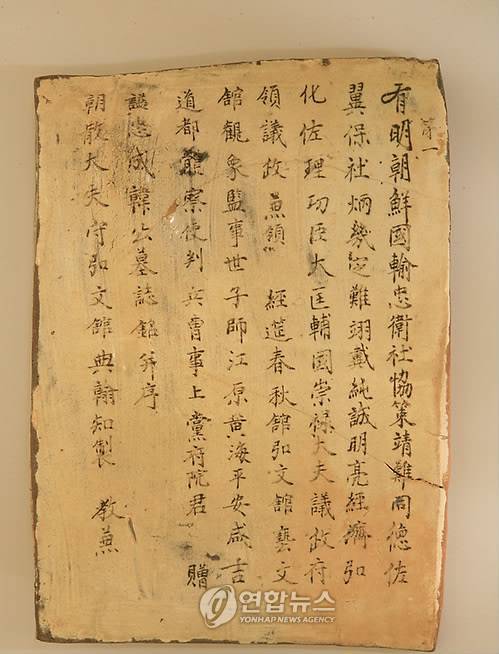 有明朝鮮國輸忠衛社協策靖難同德佐
翼保社炳幾定難翊戴純誠明亮經濟弘
化佐理功臣大匡輔國崇祿大夫議政府
領議政 兼領 經筵春秋館弘文館藝文
館觀象監事世子師江原黃海平安咸吉
道都體察使判兵曹事上黨府院君 贈
謚忠成韓公墓誌銘并序
朝散大夫守弘文館典翰知製 敎兼
연합뉴스
YONHAP NEWS AGENCY